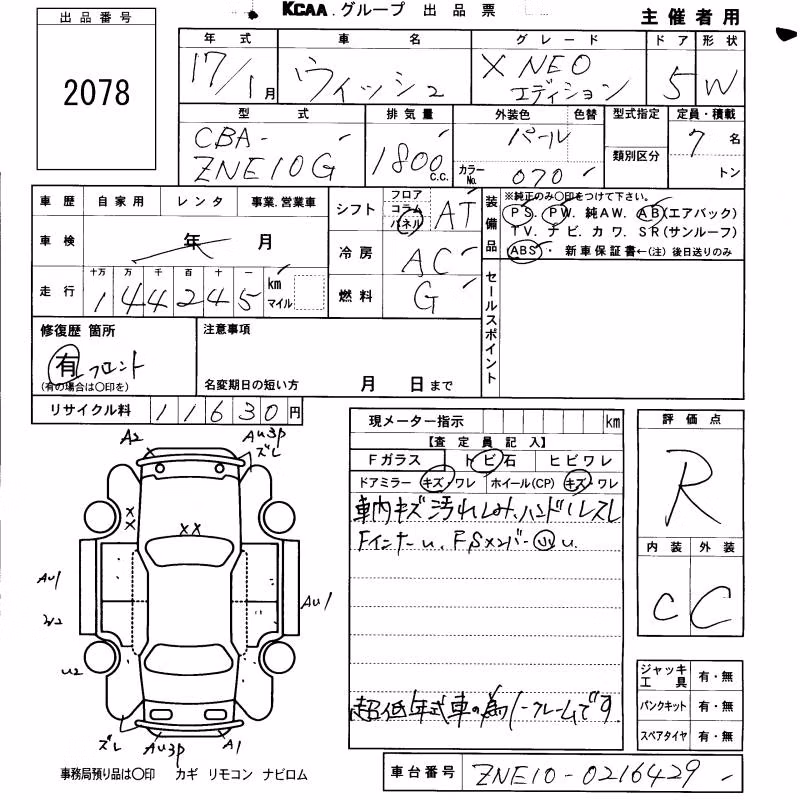 KCAA.グループ 出品票
主催者用
出品番号
2078
年式 車名 グレード ドア 形状
17/1月 ウィッシュ X NEO エディション 5 W
型式 排気量 外装色 色替 型式指定 定員・積載
CBA-
ZNE10G
1800 c.c.
パール
カラーNo. 070
類別区分
7名
トン
車歴 自家用 レンタ 事業.営業車
車検 年 月
十万 万 千 百 十 一
走行 144245 km マイル
シフト フロア コラム パネル AT
冷房 AC
燃料 G
装備品
※純正のみ○印をつけて下さい。
PS. PW. 純AW. AB(エアバック)
TV. ナビ. カワ. SR(サンルーフ)
ABS ・ 新車保証書←(注) 後日送りのみ
セールスポイント
修復歴 箇所
有 フロント
(有の場合は○印を)
注意事項
名変期日の短い方 月 日まで
リサイクル料 11630円
現メーター指示 km
【査定員記入】
Fガラス トビ石 ヒビワレ
ドアミラー キズ・ワレ ホイール(CP) キズ・ワレ
車内キズ汚れしみ.ハンドルスレ
Fインナーu. FSメンバー u.
超低年式車の為ノークレームです
評価点
R
内装 外装
C C
ジャッキ工具 有・無
パンクキット 有・無
スペアタイヤ 有・無
A2
AU3P
ズレ
XX
XX
AU1
W2
AU1
U2
ズレ
AU3P
A1
事務局預り品は○印 カギ リモコン ナビロム
車台番号 ZNE10-0216429